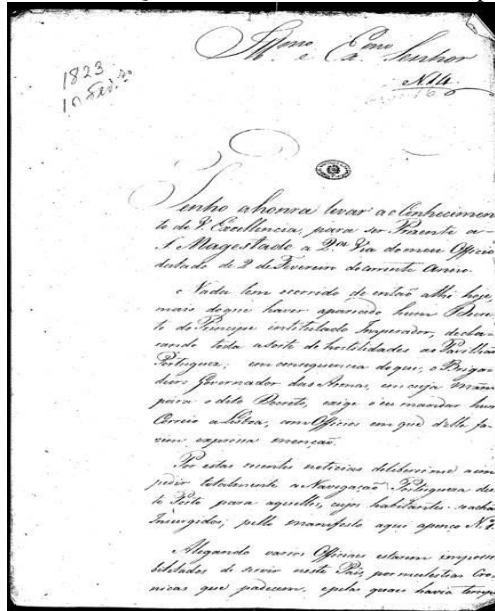 Illmo. e Exmo. Senhor
N.14
1823
10 Fev.
Tenho ahonra levar ao Conhecimen
to de V. Excellencia, para ser Prezente a
S. Magestade a 2.ª Via domeu Officio
dactado de 2 de Fevereiro docorrente Anno.
Nada tem ocorrido de então athi hoje,
mais doque haver aparecido hum Decre
to do Principe intitulado Imperador, decla
rando toda a sorte de hostilidades ao Pavilhão
Portuguez; em consequencia doque, o Briga
deiro Governador das Armas, em cuja mão
para odito Decreto, exige o eu mandar hum
Correio a Lisboa, com Officios em que delle fa
cim expressa menção.
Por estas recentes noticias deliberei-me a im
pedir totalmente a Navegação Portugueza des
te Porto para aquelles, cujos habitantes se acham
Insurgidos, pello manifesto aqui apenço N.1
Allegando varios Officiaes estarem impossi
bilitados de servir neste Paiz, por molestias Cro
nicas que padecem, e pelas quaes havia tempo